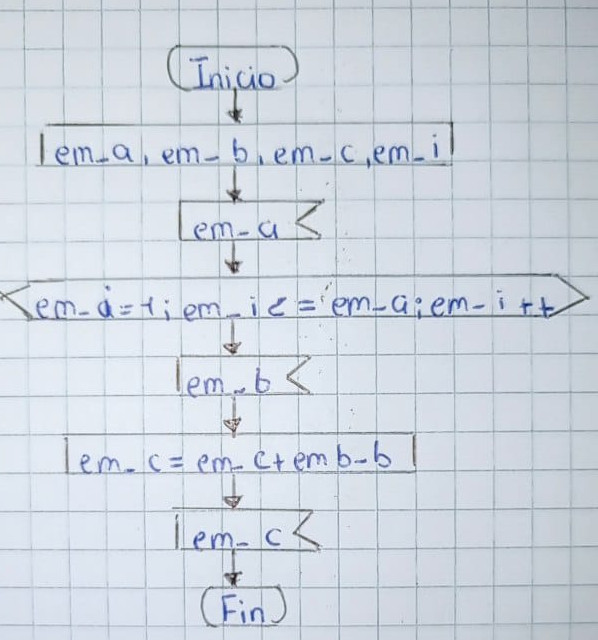 Inicio
em_a, em_b, em_c, em_i
em_a
em_i=1; em_i<=em_a; em_i++
em_b
em_c = em_c + emb_b
em_c
Fin